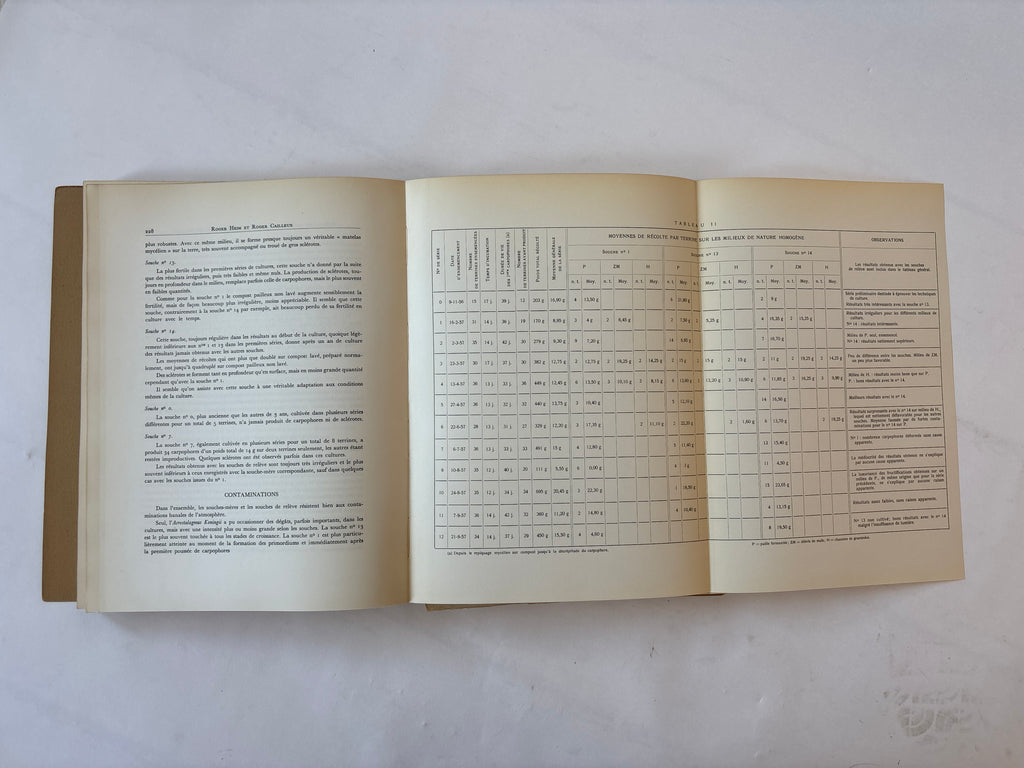 228
ROGER HEIM ET ROGER CAILLEUX
plus robustes. Avec ce même milieu, il se forme presque toujours un véritable « matelas
mycélien » sur la terre, très souvent accompagné en troué de gros sclérotes.
Souche nº 13.
La plus fertile dans les premières séries de cultures, cette souche n'a donné par la suite
que des résultats irréguliers, puis très faibles et même nuls. La production de sclérotes, tou-
jours en profondeur dans le milieu, remplace parfois celle de carpophores, mais le plus souvent
en faibles quantités.
Comme pour la souche nº 1 le compost pailleux non lavé augmente sensiblement la
fertilité, mais de façon beaucoup plus irrégulière, moins appréciable. Il semble que cette
souche, contrairement à la souche nº 14 par exemple, ait beaucoup perdu de sa fertilité en
culture avec le temps.
Souche nº 14.
Cette souche, toujours régulière dans les résultats au début de la culture, quoique légè-
rement inférieure aux nos 1 et 13 dans les premières séries, donne après un an de culture
des résultats jamais obtenus avec les autres souches.
Les moyennes de récoltes ont plus que doublé sur compost lavé, préparé normale-
ment, ont jusqu'à quadruplé sur compost pailleux non lavé.
Des sclérotes se forment tant en profondeur qu'en surface, mais en moins grande quantité
cependant qu'avec la souche nº 1.
Il semble qu'on assiste avec cette souche à une véritable adaptation aux conditions
mêmes de la culture.
Souche nº 0.
La souche nº 0, plus ancienne que les autres de 3 ans, cultivée dans plusieurs séries
différentes pour un total de 5 terrines, n'a jamais produit de carpophores ni de sclérotes.
Souche nº 7.
La souche nº 7, également cultivée en plusieurs séries pour un total de 8 terrines, a
produit 34 carpophores d'un poids total de 14 g sur deux terrines seulement, les autres étant
restées improductives. Quelques sclérotes ont été observés parfois dans ces cultures.
Les résultats obtenus avec les souches de relève sont toujours très irréguliers et le plus
souvent inférieurs à ceux enregistrés avec la souche-mère correspondante, sauf dans quelques
cas avec les souches issues du nº 1.
CONTAMINATIONS
Dans l'ensemble, les souches-mères et les souches de relève résistent bien aux conta-
minations banales de l'atmosphère.
Seul, l'Acrostalagmus Koningii a pu occasionner des dégâts, parfois importants, dans les
cultures, mais avec une intensité plus ou moins grande selon les souches. La souche nº 13
est le plus souvent touchée à tous les stades de croissance. La souche nº 1 est plus particu-
lièrement atteinte au moment de la formation des primordiums et immédiatement après
la première poussée de carpophores
TABLEAU II
MOYENNES DE RÉCOLTE PAR TERRINE SUR LES MILIEUX DE NATURE HOMOGÈNE
OBSERVATIONS
Nº DE SÉRIE
DATE D'ENSEMENCEMENT
NOMBRE DE TERRINES ENSEMENCÉES
TEMPS D'INCUBATION
DURÉE DE VIE DES 1ers CARPOPHORES (a)
NOMBRE DE TERRINES AYANT PRODUIT
POIDS TOTAL RÉCOLTÉ
MOYENNE GÉNÉRALE DE LA SÉRIE
SOUCHE nº 1
SOUCHE nº 13
SOUCHE nº 14
P ZM H P ZM H P ZM H
n. t. Moy. n. t. Moy. n. t. Moy. n. t. Moy. n. t. Moy. n. t. Moy. n. t. Moy. n. t. Moy. n. t. Moy.
Les résultats obtenus avec les souches
de relève sont inclus dans le tableau général.
0 9-11-56 15 17 j. 39 j. 12 203 g 16,90 g 4 13,50 g 6 21,80 g 2 9 g
Série préliminaire destinée à éprouver les techniques
de culture.
Résultats très intéressants avec la souche nº 13.
1 16-2-57 31 14 j. 36 j. 19 170 g 8,95 g 3 4 g 2 6,45 g 2 7,50 g 2 5,25 g 4 15,25 g 2 15,25 g
Résultats irréguliers pour les différents milieux de
culture.
Nº 14 : résultats intéressants.
2 2-3-57 35 14 j. 42 j. 30 279 g 9,30 g 9 7,20 g 14 6,85 g 7 16,70 g
Milieu de P seul, commencé
Nº 14 : résultats nettement supérieurs.
3 23-3-57 30 17 j. 30 382 g 12,75 g 2 12,75 g 2 19,25 g 2 14,25 g 2 15 g 2 15 g 2 11 g 2 19,25 g 2 14,25 g
Peu de différence entre les souches. Milieu de ZM,
un peu plus favorable.
4 13-4-57 36 13 j. 33 j. 36 449 g 12,45 g 6 13,50 g 3 10,10 g 2 8,15 g 6 12,80 g 13,20 g 3 10,90 g 6 11,83 g 3 16,25 g 3 9,90 g
Milieu de H. : résultats moins bons que sur P.
P. : bons résultats avec le nº 14.
5 27-4-57 36 13 j. 32 j. 32 440 g 13,75 g 3 10,40 g 5 12,10 g 14 16,50 g
Meilleurs résultats avec le nº 14.
6 22-6-57 28 13 j. 31 j. 27 329 g 12,20 g 3 17,35 g 2 11,10 g 2 22,20 g 2 1,60 g 6 13,70 g 2 19,25 g
Résultats surprenants avec le nº 14 sur milieu de H,
lequel est nettement défavorable pour les autres
souches. Moyenne faussée par de fortes contaminations
pour le nº 14 sur P.
7 6-7-57 36 13 j. 33 j. 33 491 g 15 g 4 12,60 g 5 11,40 g 12 15,40 g
Nº 1 : nombreux carpophores déformés sans cause
apparente.
8 10-8-57 35 12 j. 40 j. 20 111 g 5,55 g 6 4 7 g 11 4,50 g
La médiocrité des résultats obtenus ne s'explique
par aucune cause apparente.
10 24-8-57 35 12 j. 34 j. 34 695 g 20,45 g 3 22,30 g 1 18,50 g 15 23,05 g
La luxuriance des fructifications obtenues sur un
milieu de P., de même origine que pour la série
précédente, ne s'explique par aucune cause
apparente.
11 7-9-57 36 14 j. 42 j. 32 360 g 11,20 g 2 14,80 g 4 10,40 g 4 13,15 g
Résultats assez faibles, sans raison apparente.
12 21-9-57 24 14 j. 37 j. 29 450 g 15,50 g 4 4,60 g 8 19,50 g
Nº 13 non cultivé ; bons résultats avec le nº 14
malgré l'insuffisance de lumière.
(a) Depuis le repiquage mycélien sur compost jusqu'à la décrépitude du carpophore.
P = paille fermentée ; ZM = débris de maïs ; H =